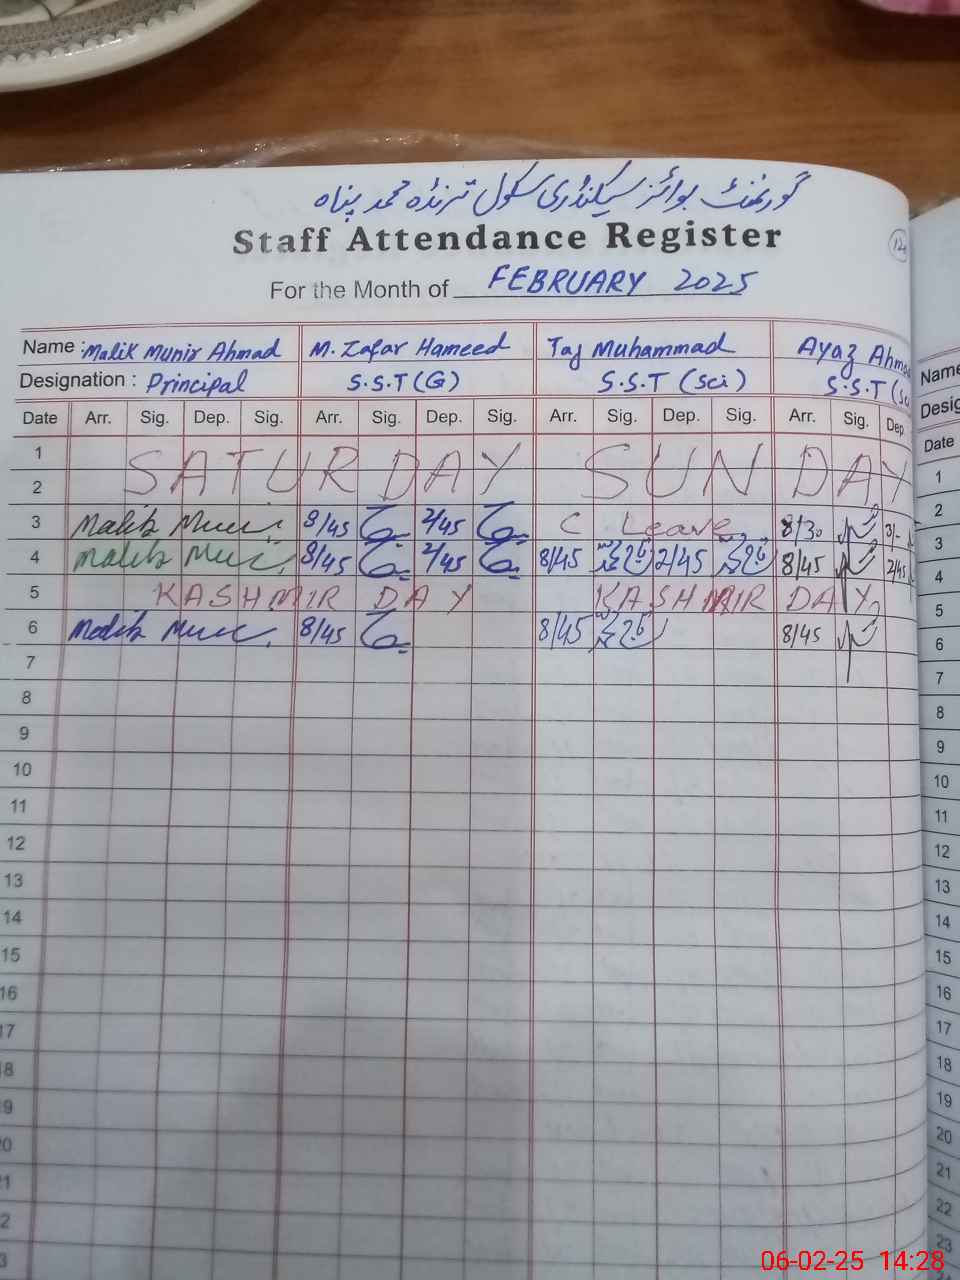 گورنمنٹ بوائز سیکنڈری سکول ترنڈہ محمد پناہ
Staff Attendance Register
For the Month of FEBRUARY 2025
Name : Malik Munir Ahmad M. Zafar Hameed Taj Muhammad Ayaz Ahma
Designation : Principal S.S.T (G) S.S.T (Sci) S.S.T (Sc
Date Arr. Sig. Dep. Sig. Arr. Sig. Dep. Sig. Arr. Sig. Dep. Sig. Arr. Sig. Dep.
1 SATURDAY SUNDAY
2
3 Malik 8/45 2/45 C Leave 8/30 3/-
4 Malik 8/45 2/45 8/45 2/45 8/45 2/45
5 KASHMIR DAY KASHMIR DAY
6 Malik 8/45 8/45 8/45
7
8
9
10
11
12
13
14
15
16
17
8
9
0
1
2
3
Name
Desig
Date
1
2
3
4
5
6
7
8
9
10
11
12
13
14
15
16
17
18
19
20
21
22
23
06-02-25 14:28